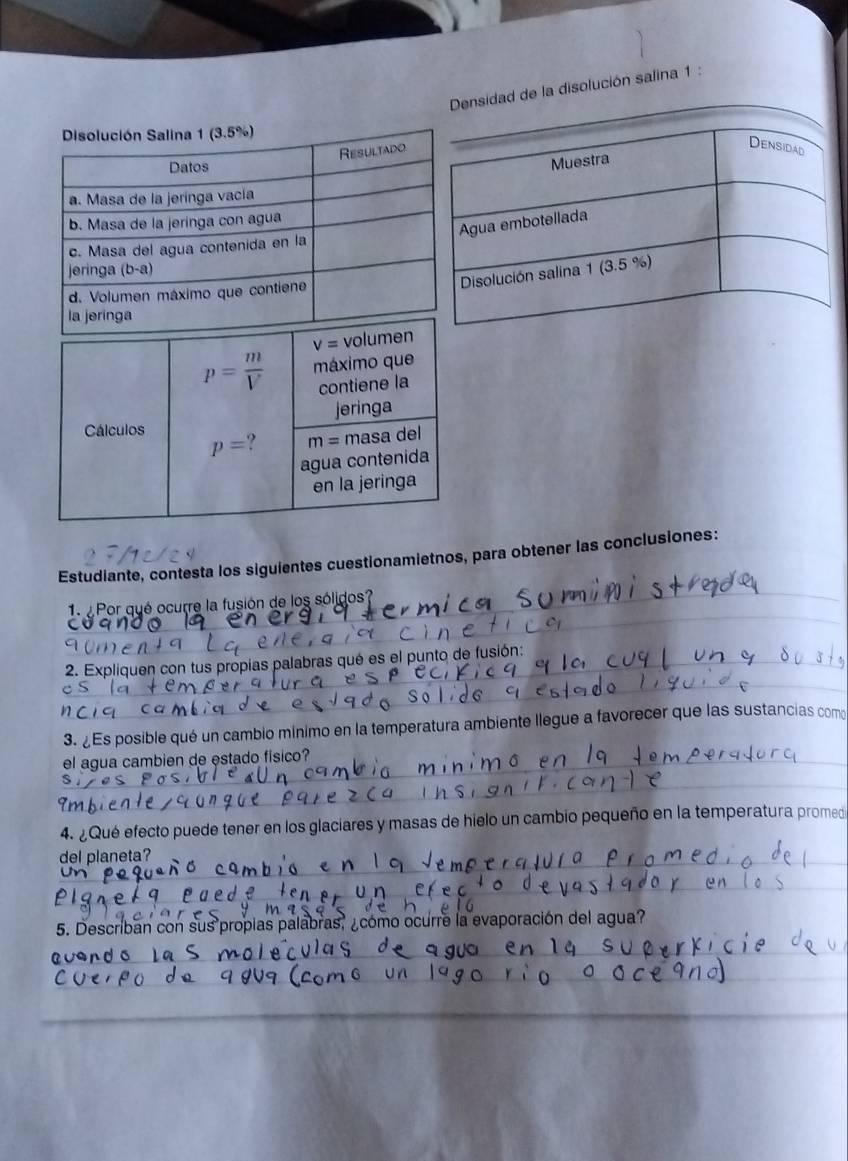 Densidad de la disolución salina 1 :
Disolución Salina 1 (3.5%)
Datos
RESULTADO
a. Masa de la jeringa vacía
b. Masa de la jeringa con agua
c. Masa del agua contenida en la
jeringa (b-a)
d. Volumen máximo que contiene
la jeringa
Muestra
DENSIDAD
Agua embotellada
Disolución salina 1 (3.5 %)
Cálculos
p = m/V
p = ?
v = volumen
máximo que
contiene la
jeringa
m = masa del
agua contenida
en la jeringa
27/12/24
Estudiante, contesta los siguientes cuestionamietnos, para obtener las conclusiones:
1. ¿Por qué ocurre la fusión de los sólidos?
cuando la energia termica suministrada
aumenta la energia cinetica
2. Expliquen con tus propias palabras qué es el punto de fusión:
es la temperatura especifica a la cual una susta
ncia cambia de estado solido a estado liquido
3. ¿Es posible qué un cambio mínimo en la temperatura ambiente llegue a favorecer que las sustancias como
el agua cambien de estado físico?
si, es posible. Un cambio minimo en la temperatura
ambiente, aunque parezca insignificante
4. ¿Qué efecto puede tener en los glaciares y masas de hielo un cambio pequeño en la temperatura promedi
del planeta?
un pequeño cambio en la temperatura promedio del
planeta puede tener un efecto devastador en los
glaciares y masas de hielo
5. Describan con sus propias palabras, ¿cómo ocurre la evaporación del agua?
cuando las moleculas de agua en la superficie de u
cuerpo de agua (como un lago rio o oceano)